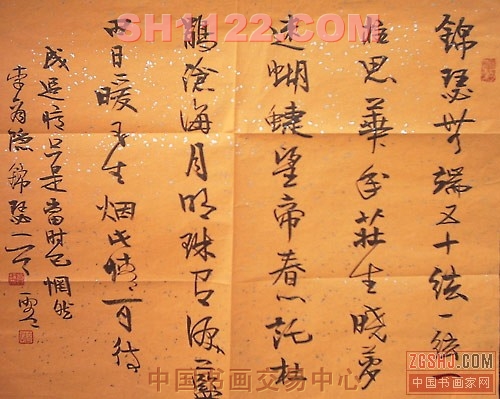 錦瑟無端五十絃一絃一
柱思華年莊生曉夢
迷蝴蝶望帝春心託杜
鵑滄海月明珠有淚藍
田日暖玉生烟此情可待
成追憶只是當時已惘然
李商隱錦瑟一首
SH1122.COM
中国书画交易中心
ZGSHJ.COM
中国书画家网